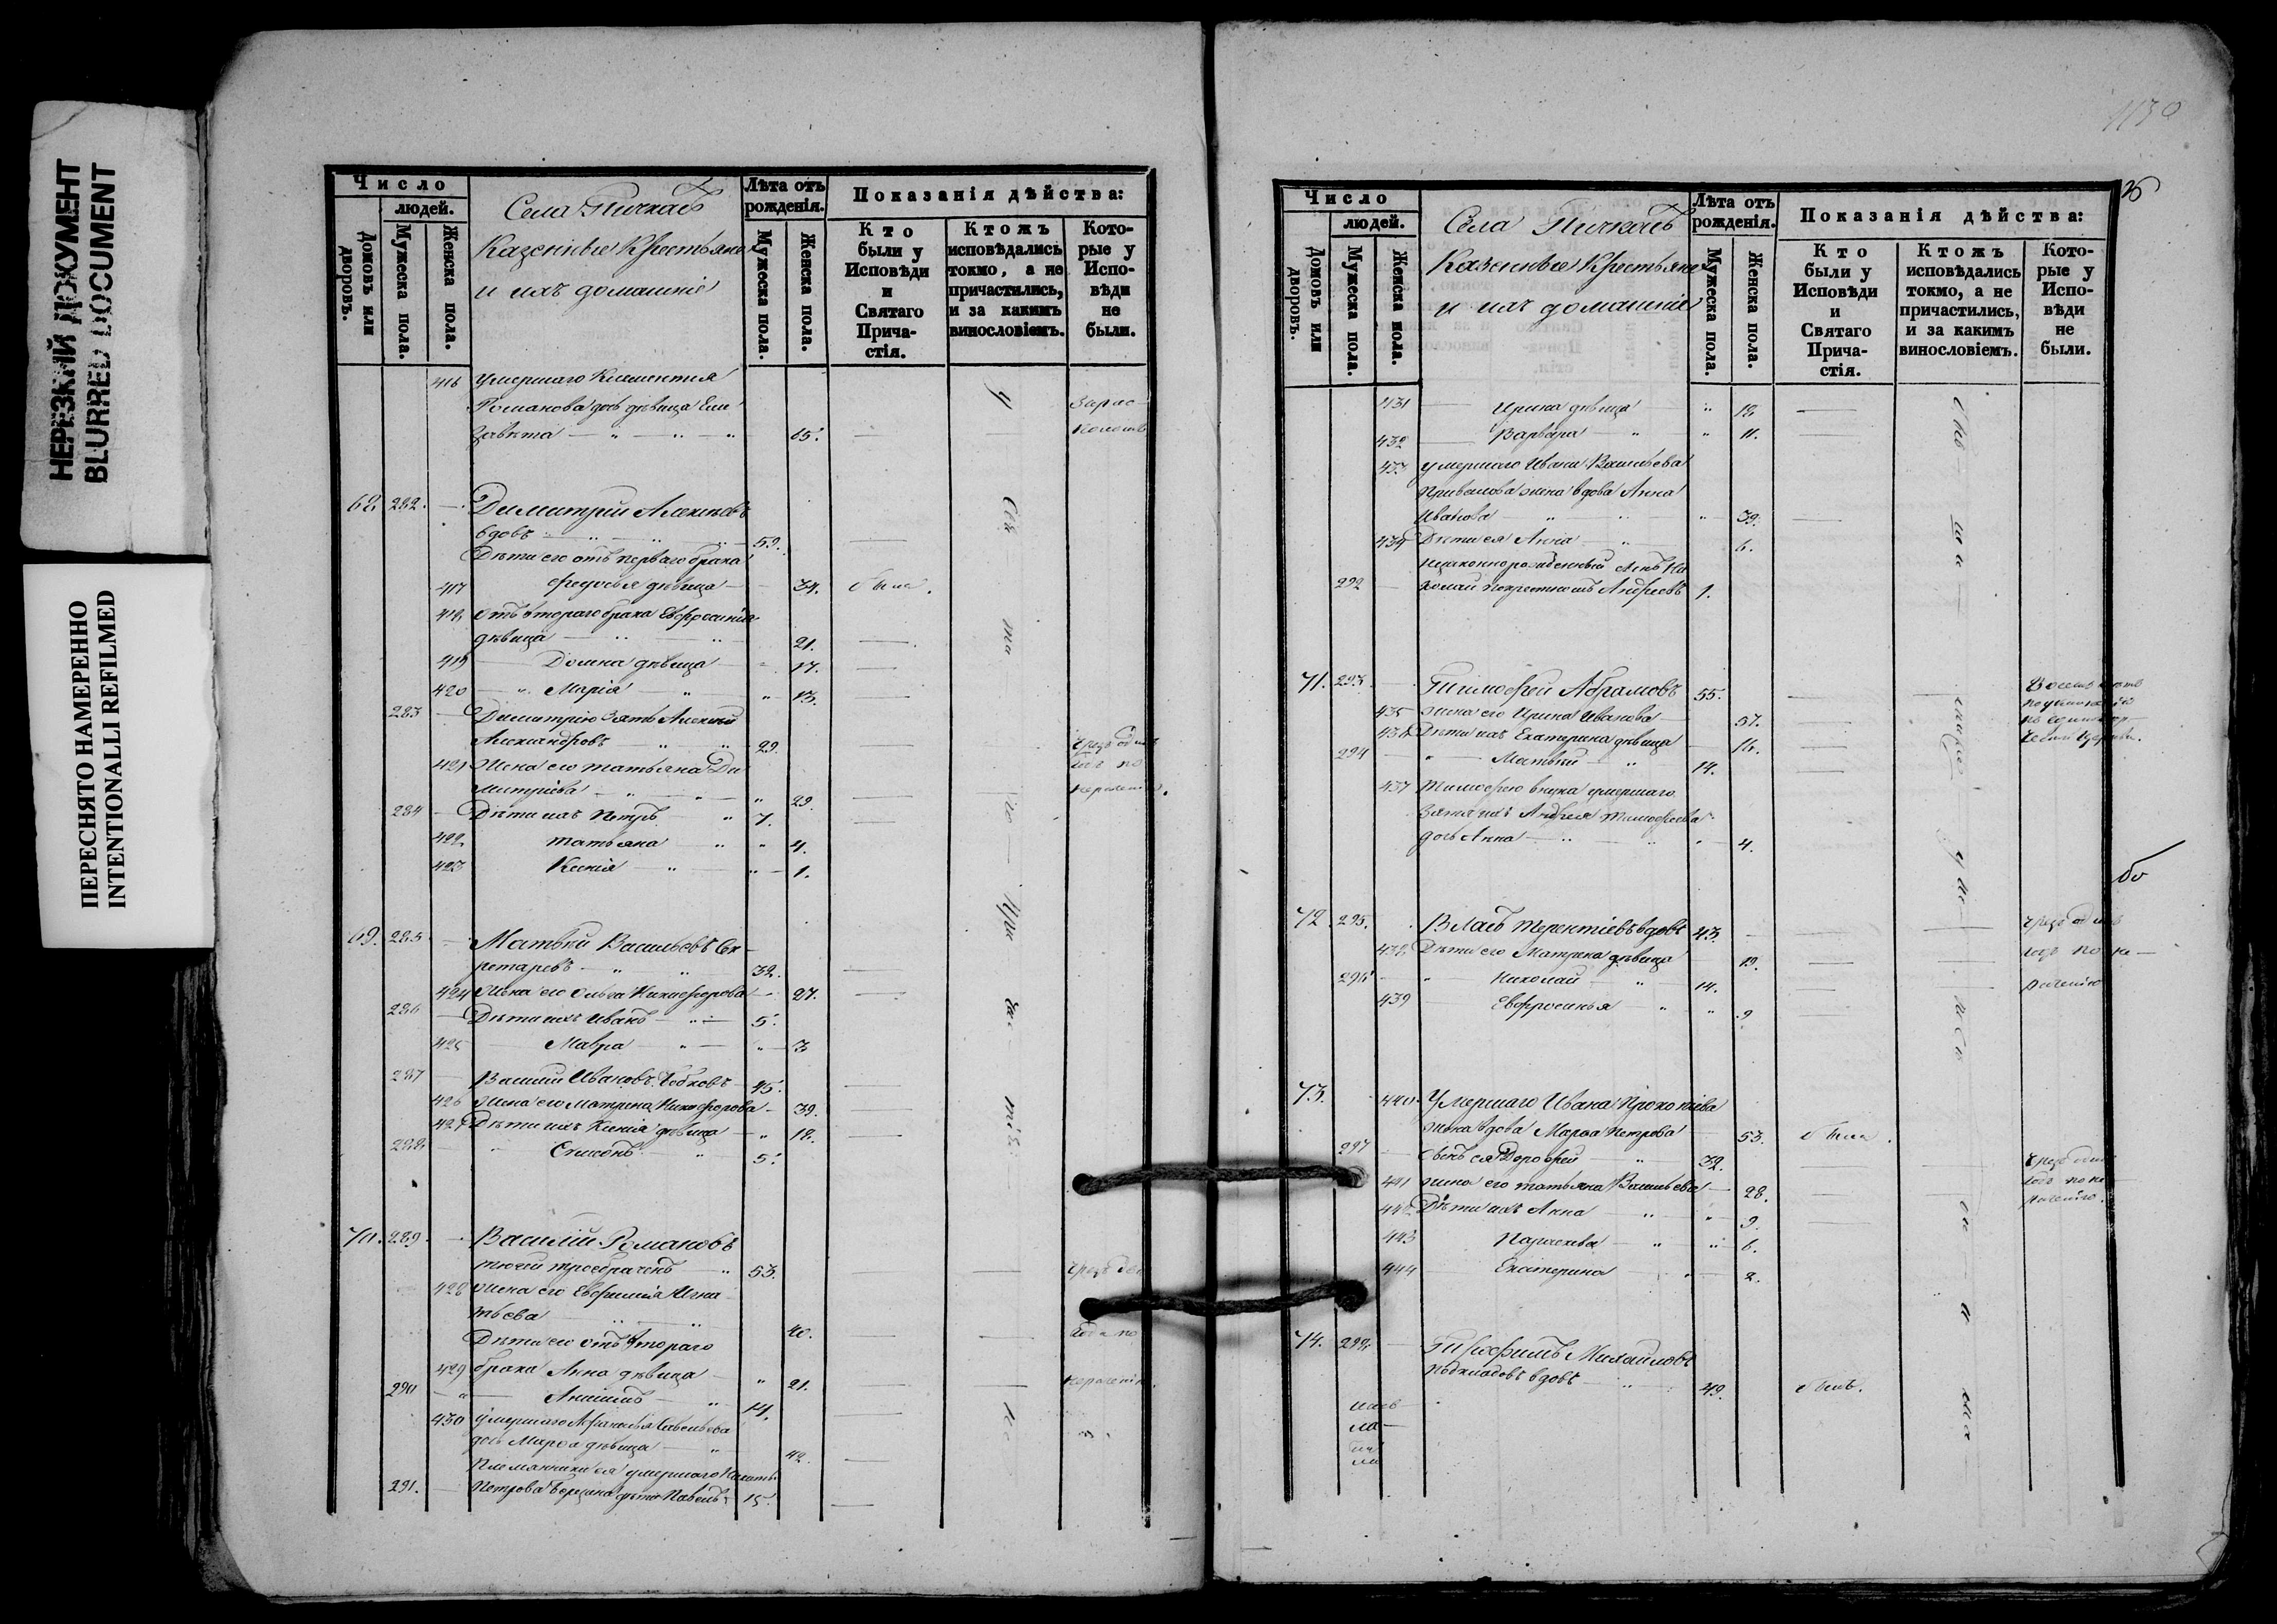 НЕРЕЗКИЙ ДОКУМЕНТ
BLURRED DOCUMENT
ПЕРЕСНЯТО НАМЕРЕННО
INTENTIONALLI REFILMED
Число
людей.
Домовъ или дворовъ.
Мужеска пола.
Женска пола.
Села Пичкасъ
Казенные Крестьяне
и ихъ домашніе
Лѣта отъ рожденія.
Мужеска пола.
Женска пола.
Показанія дѣйства:
Кто были у Исповѣди и Святаго Прича-стія.
Ктожъ исповѣдались токмо, а не причастились, и за какимъ винословіемъ.
Кото-рые у Испо-вѣди не были.
416 умершаго Климентія
Романова дочь дѣвица Ели
завета 65.
68. 282. Димитрій Алексѣевъ
вдовъ 59.
Дѣти его отъ перваго брака
417 Ѳедосья дѣвица 34. была.
418 отъ втораго брака Евфросинія
дѣвица 21.
419 Домна дѣвица 17.
420 Марія 13.
283 Димитрію зять Алексѣй
Александровъ 29.
421 Жена его Татьяна Ди
митріева 29.
284 Дѣти ихъ Петръ 7.
422 Татьяна 4.
423 Ксенія 1.
69. 285 Матвѣй Васильевъ Сек
ретаревъ 32.
424 Жена его Ольга Никифорова 27.
286 Дѣти ихъ Иванъ 5.
425 Мавра 3
287 Василій Ивановъ 45.
426 Жена его Матрена Никифорова 39.
427 Дѣти ихъ Ксенія дѣвица 18.
288 Симеонъ 5.
70. 289 Василій Романовъ
троебраченъ 53.
428 Жена его Евфимія Игна
тьева 40.
Дѣти его отъ втораго
429 брака Анна дѣвица 21.
290 Анисимъ 14.
430 умершаго Савельева
дочь Марѳа дѣвица 42.
Племянники ея умершаго
291. Петрова Павелъ 15.
1130
Число
людей.
Домовъ или дворовъ.
Мужеска пола.
Женска пола.
Села Пичкасъ
Казенные Крестьяне
и ихъ домашніе
Лѣта отъ рожденія.
Мужеска пола.
Женска пола.
Показанія дѣйства:
Кто были у Исповѣди и Святаго Прича-стія.
Ктожъ исповѣдались токмо, а не причастились, и за какимъ винословіемъ.
Кото-рые у Испо-вѣди не были.
431 Ирина дѣвица 18.
432 Варвара 11.
433 умершаго Ивана Васильева
Привалова жена вдова Анна
Иванова 39.
434 Дѣти ея Анна 6.
незаконнорожденный сынъ Ни
292 колай по крестномъ Андреевъ 1.
71. 293. Тимоѳей Абрамовъ 55.
435 жена его Ирина Иванова 57.
436 Дѣти ихъ Екатерина дѣвица 16.
294 Матвѣй 14.
437 Тимоѳею внука умершаго
зятя ихъ Андрея Тимоѳеева
дочь Анна 4.
72. 295. Власъ Терентіевъ вдовъ 43.
438 Дѣти его Матрена дѣвица 19.
296 Николай 14.
439 Евфросинья 9
73. 440 Умершаго Ивана Прокопіева
жена вдова Марѳа Петрова 53. была.
297 сынъ ея Дороѳей 32.
441 жена его Татьяна Васильева 28.
442 Дѣти ихъ Анна 9.
443 Параскева 6.
444 Екатерина 2.
74. 298 Михайловъ
вдовъ 49. былъ.